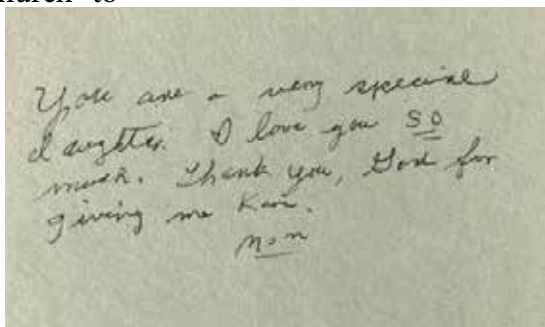 hurch to
You are a very special
daughter. I love you SO
much. Thank you, God for
giving me Kari.
Mom